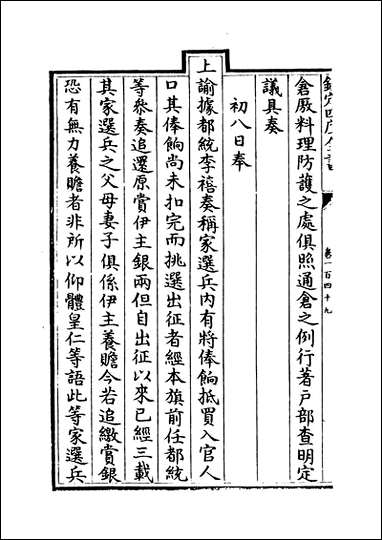 欽定四庫全書
卷一百四十九
倉厫料理防護之處俱照通倉之例行著戸部查明定
議具奏
初八日奉
上諭據都統李禧奏稱家選兵内有將俸餉抵買入官人
口其俸餉尚未扣完而挑選出征者經本旗前任都統
等叅奏追還原賞伊主銀兩但自出征以來已經三載
其家選兵之父母妻子俱係伊主養贍今若追繳賞銀
恐有無力養贍者非所以仰體皇仁等語此等家選兵